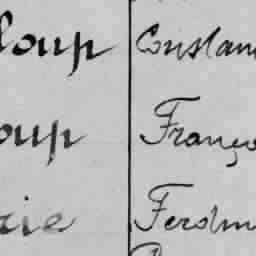 loup Constan
oup Franço
rie Ferdin